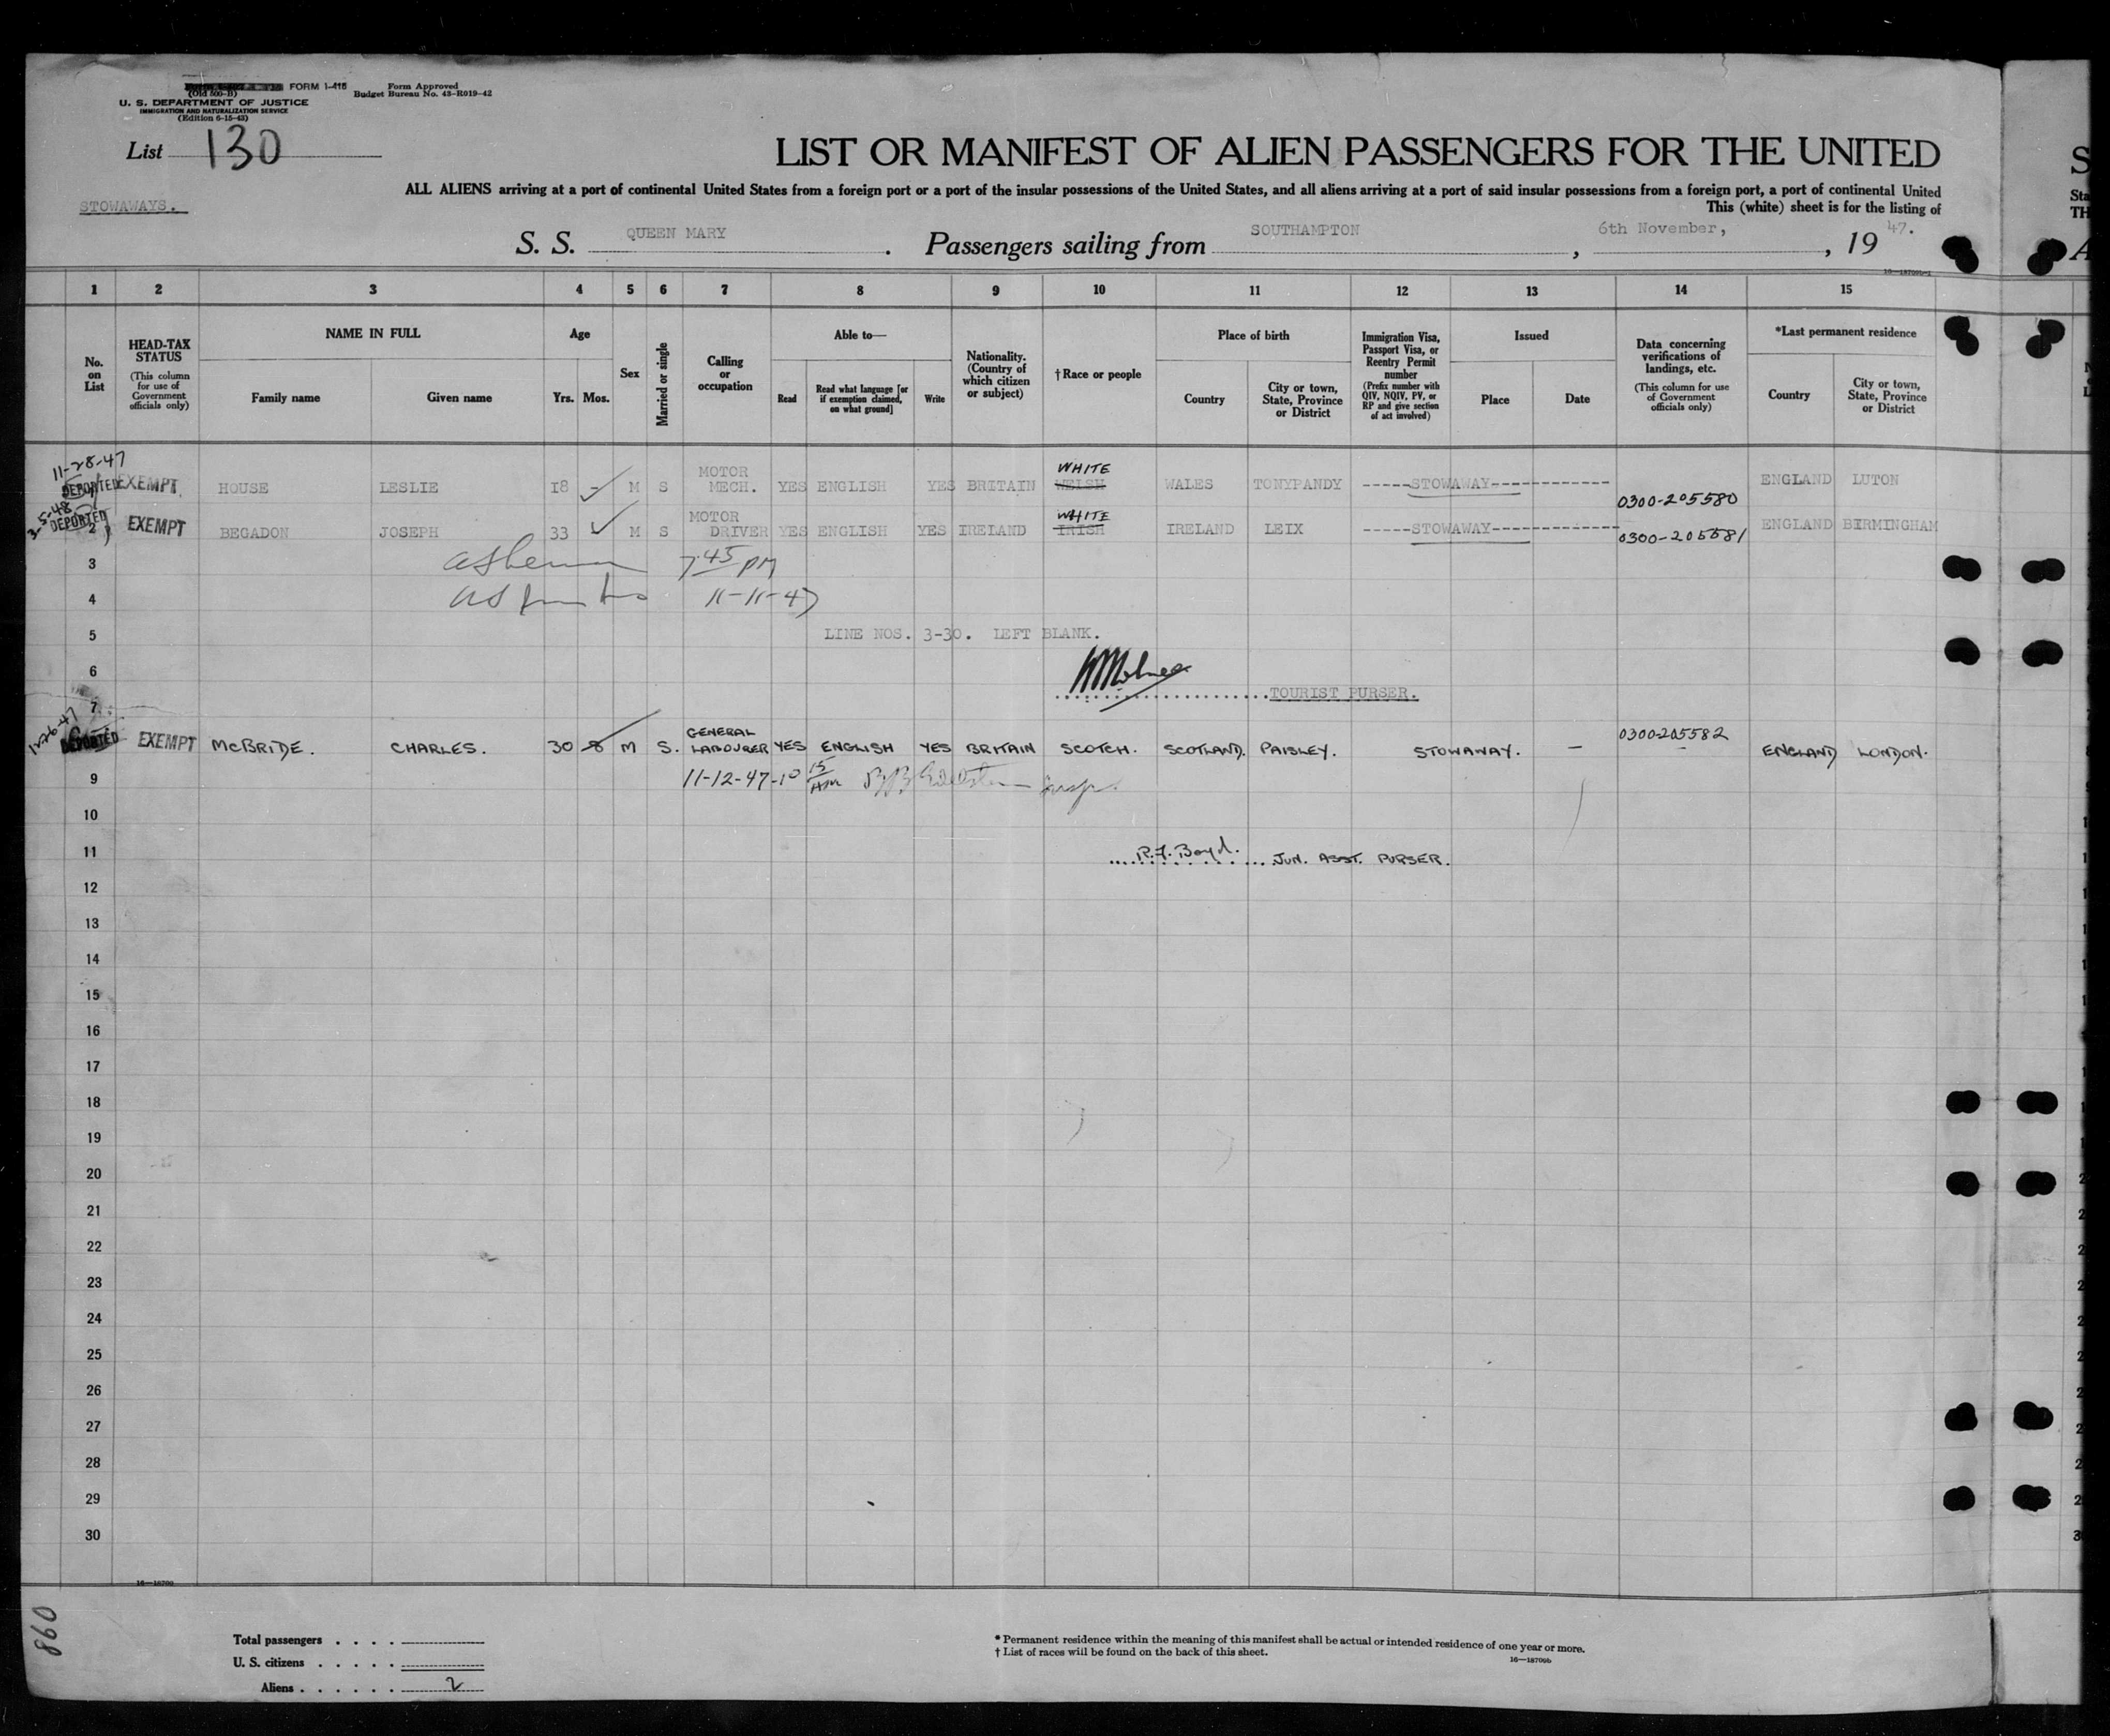 FORM I-415 Form Approved
(Old 500-B) Budget Bureau No. 43-R019-42
U. S. DEPARTMENT OF JUSTICE
IMMIGRATION AND NATURALIZATION SERVICE
(Edition 6-15-43)
List 130
LIST OR MANIFEST OF ALIEN PASSENGERS FOR THE UNITED
S
ALL ALIENS arriving at a port of continental United States from a foreign port or a port of the insular possessions of the United States, and all aliens arriving at a port of said insular possessions from a foreign port, a port of continental United
Sta
STOWAWAYS.
This (white) sheet is for the listing of
TH
S. S. QUEEN MARY. Passengers sailing from SOUTHAMPTON, 6th November, , 19 47.
1 2 3 4 5 6 7 8 9 10 11 12 13 14 15
No. on List
HEAD-TAX STATUS (This column for use of Government officials only)
NAME IN FULL
Family name Given name
Age
Yrs. Mos.
Sex
Married or single
Calling or occupation
Able to—
Read Read what language [or if exemption claimed, on what ground] Write
Nationality. (Country of which citizen or subject)
†Race or people
Place of birth
Country City or town, State, Province or District
Immigration Visa, Passport Visa, or Reentry Permit number (Prefix number with QIV, NQIV, PV, or RP and give section of act involved)
Issued
Place Date
Data concerning verifications of landings, etc. (This column for use of Government officials only)
*Last permanent residence
Country City or town, State, Province or District
11-28-47
DEPORTED EXEMPT HOUSE LESLIE 18 - M S MOTOR MECH. YES ENGLISH YES BRITAIN WELSH WHITE WALES TONYPANDY -----STOWAWAY------------- 0300-205580 ENGLAND LUTON
3-5-48
DEPORTED 2 EXEMPT BEGADON JOSEPH 33 M S MOTOR DRIVER YES ENGLISH YES IRELAND IRISH WHITE IRELAND LEIX -----STOWAWAY------------- 0300-205581 ENGLAND BIRMINGHAM
3 7 45 PM
4 11-11-47
5 LINE NOS. 3-30. LEFT BLANK.
6
TOURIST PURSER.
7
DEPORTED EXEMPT McBRIDE. CHARLES. 30 8 M S. GENERAL LABOURER YES ENGLISH YES BRITAIN SCOTCH. SCOTLAND. PAISLEY. STOWAWAY. — 0300-205582 ENGLAND LONDON.
9 11-12-47-10 15 AM
10
11 R.F. Boyd. JUN. ASST. PURSER.
12
13
14
15
16
17
18
19
20
21
22
23
24
25
26
27
28
29
30
16—18709
860
Total passengers . . . .
U. S. citizens . . . . .
Aliens . . . . . . 2
* Permanent residence within the meaning of this manifest shall be actual or intended residence of one year or more.
† List of races will be found on the back of this sheet.
16—18709b